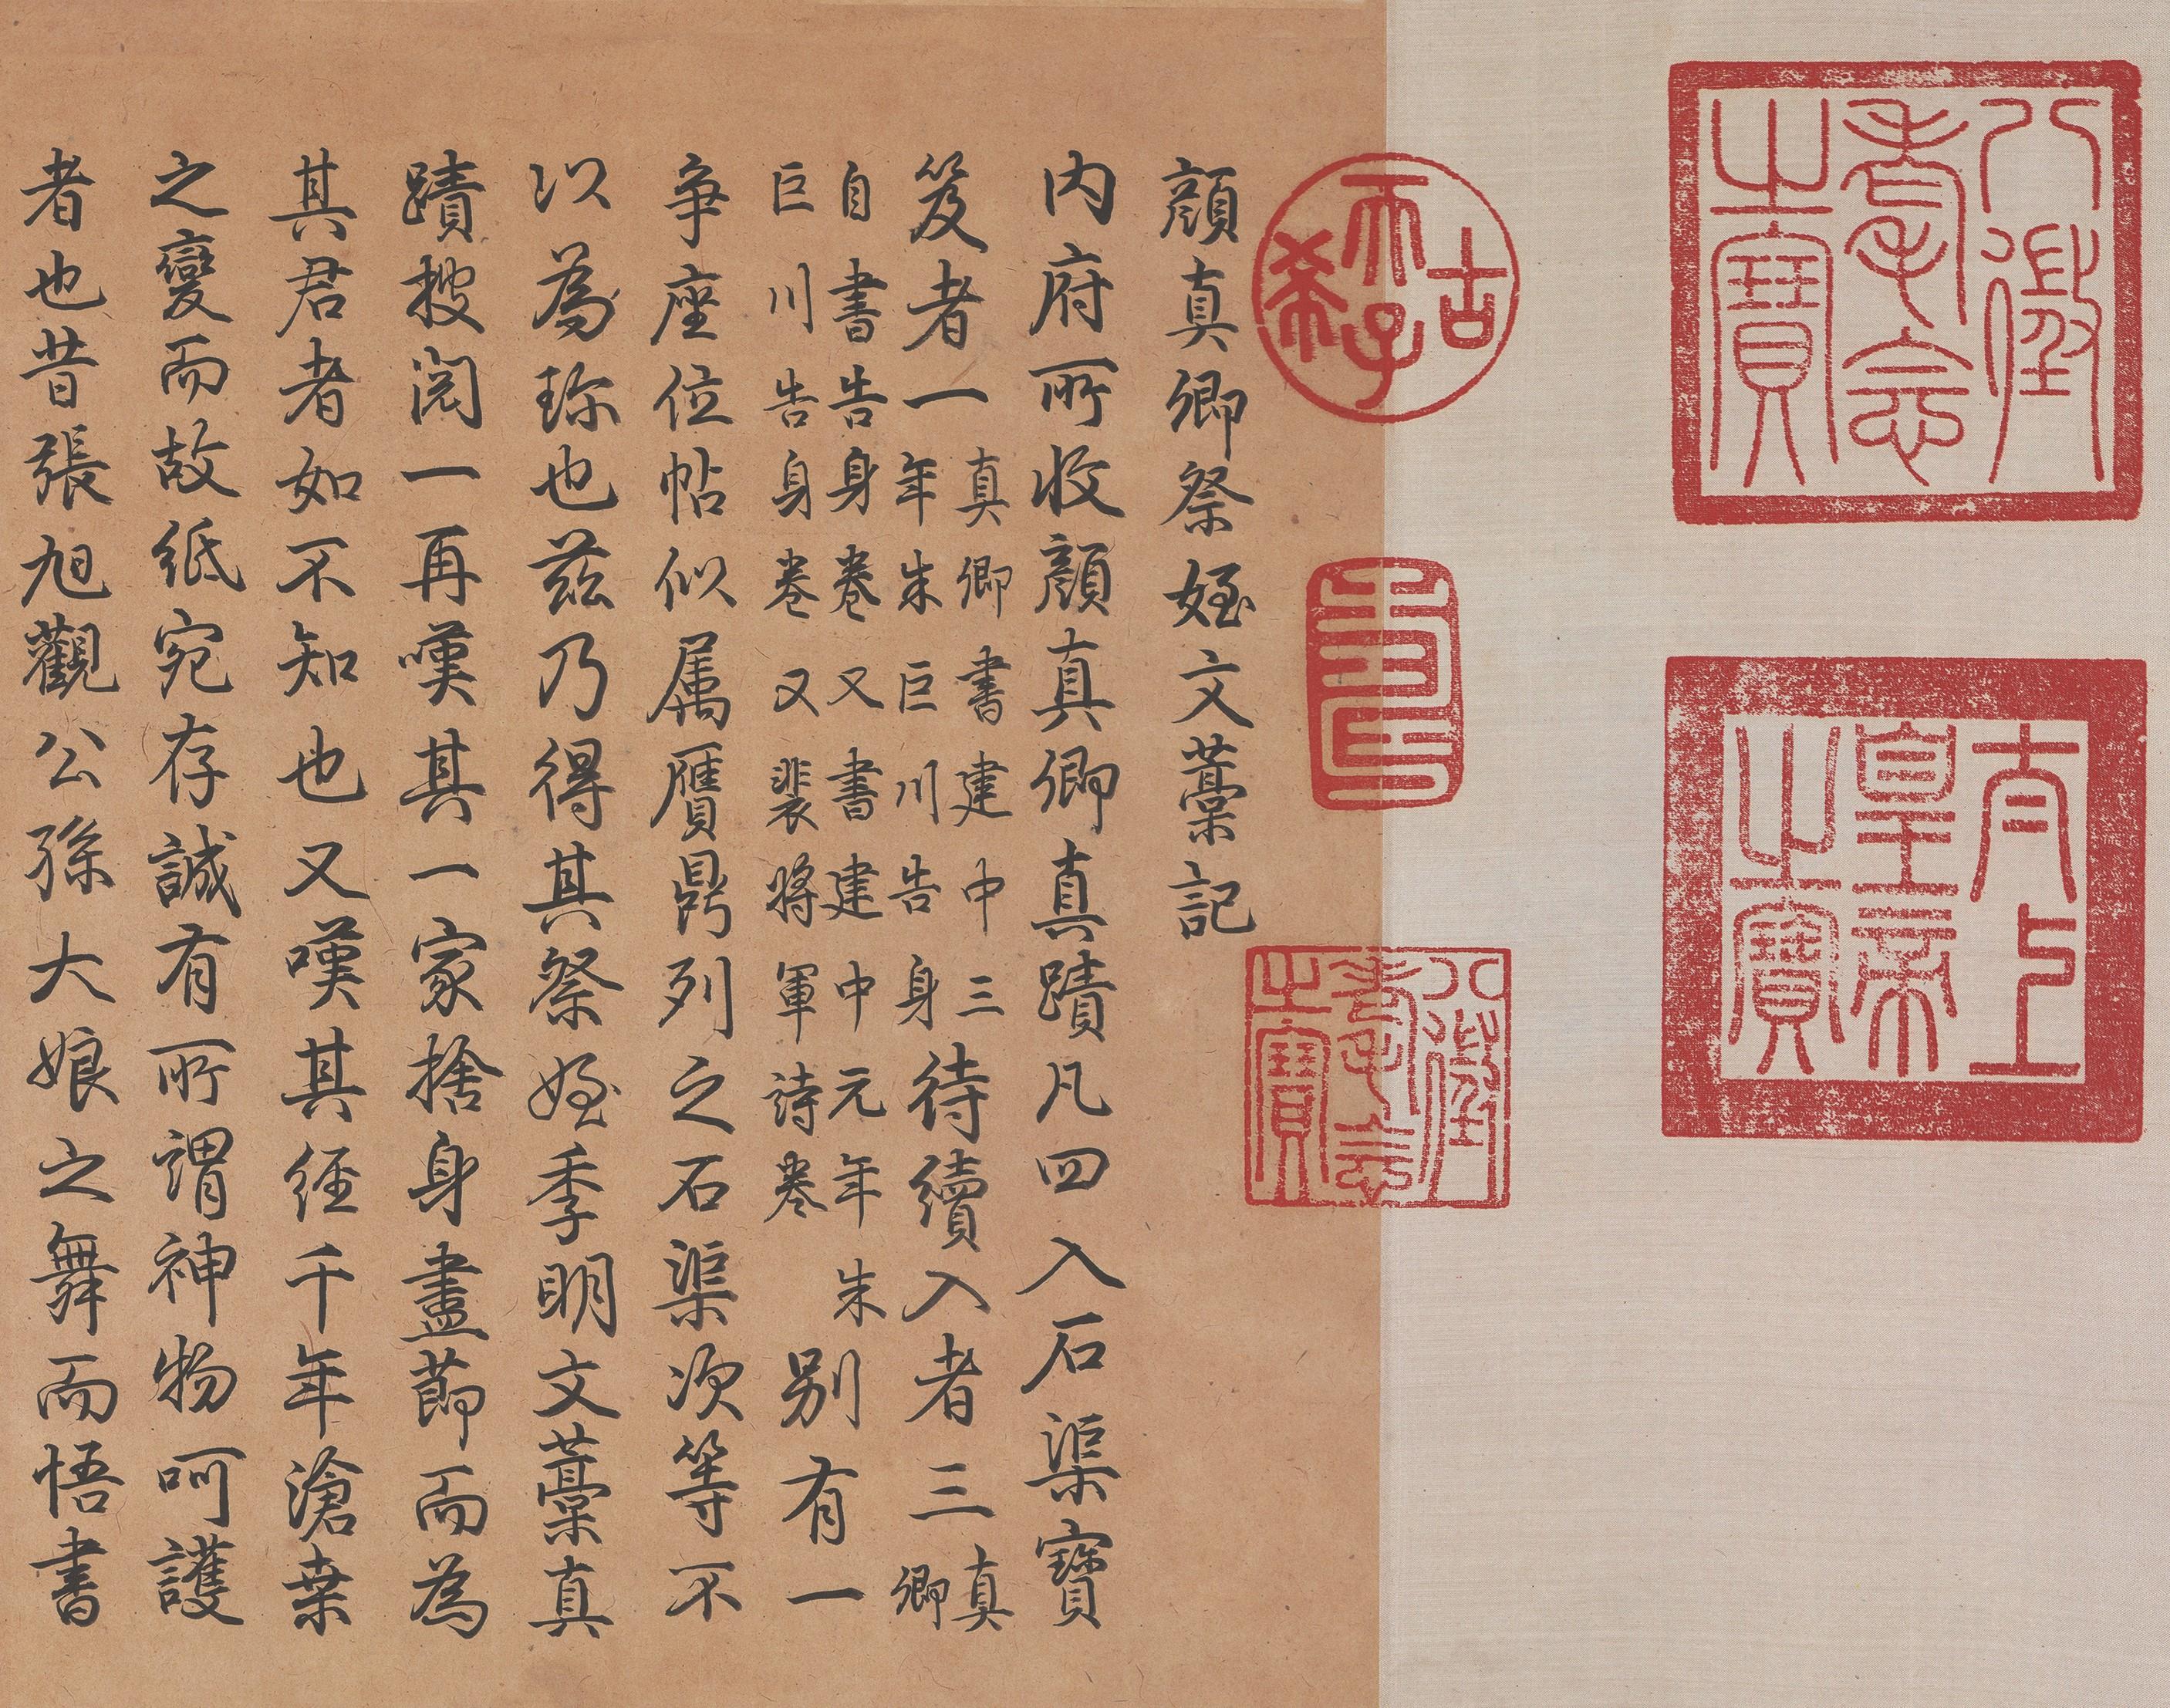 八徵
耄念
之寶
太上
皇帝
之寶
古
天子
希
壽
八徵
耄念
之寶
顏真卿祭姪文藁記
內府所收顏真卿真蹟凡四入石渠寶
笈者一
真卿書建中三
年朱巨川告身
待續入者三
真
卿
自書告身卷又書建中元年朱
巨川告身卷又裴將軍詩卷
別有一
爭座位帖似属贗鼎列之石渠次等不
以為珍也兹乃得其祭姪季明文藁真
蹟披閱一再嘆其一家捨身盡節而為
其君者如不知也又嘆其經千年滄桒
之變而故紙宛存誠有所謂神物呵護
者也昔張旭觀公孫大娘之舞而悟書